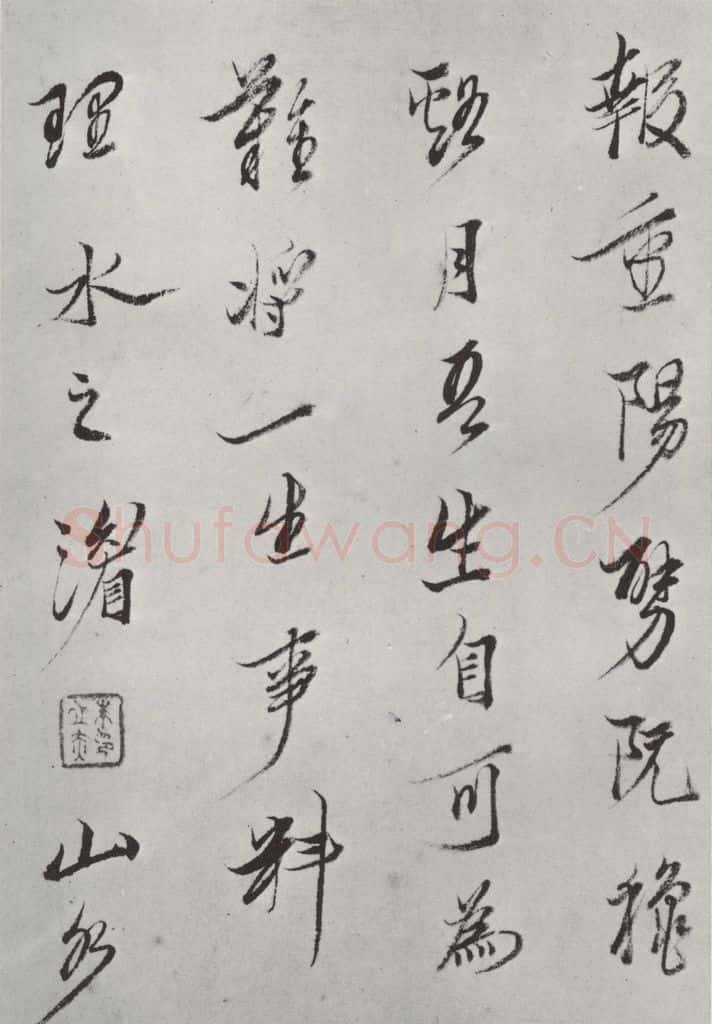 報重陽阮
月吾生自可為
難將一生事料
理水之湄
山
Shufawang.CN